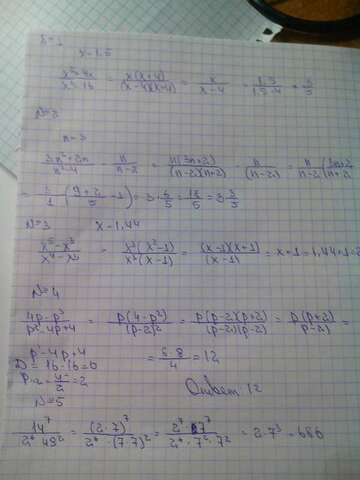 N=1
x-1,5
x²+4x / x²-16 = x(x+4) / (x-4)(x+4) = x / x-4 = 1,5 / 1,5-4 = 3 / 5
N=2
n-3
3n²+2n / n²-4 - n / n-2 = n(3n+2) / (n-2)(n+2) - n / (n-2) = n / n-2 (3n+2 / n+2
= 3 / 1 (9+2 / 5 - 1) = 3 · 6 / 5 = 18 / 5 = 3 3 / 5
N=3 x-1,44
x⁵-x³ / x⁴-x³ = x³(x²-1) / x³(x-1) = (x-1)(x+1) / (x-1) = x+1 = 1,44+1=2
N=4
4p-p³ / p²-4p+4 = p(4-p²) / (p-2)² = p(p-2)(p+2) / (p-2)(p-2) = p(p+2) / p-2) =
p²-4p+4 = 6·8 / 4 = 12
D = 16-16=0
p-2 = 4 / 2 = 2 Ответ: 12
N=5
14⁷ / 2⁶ 49² = (2·7)⁷ / 2⁶·(7·7)² = 2⁷·7⁷ / 2⁶·7²·7² = 2·7³ = 686